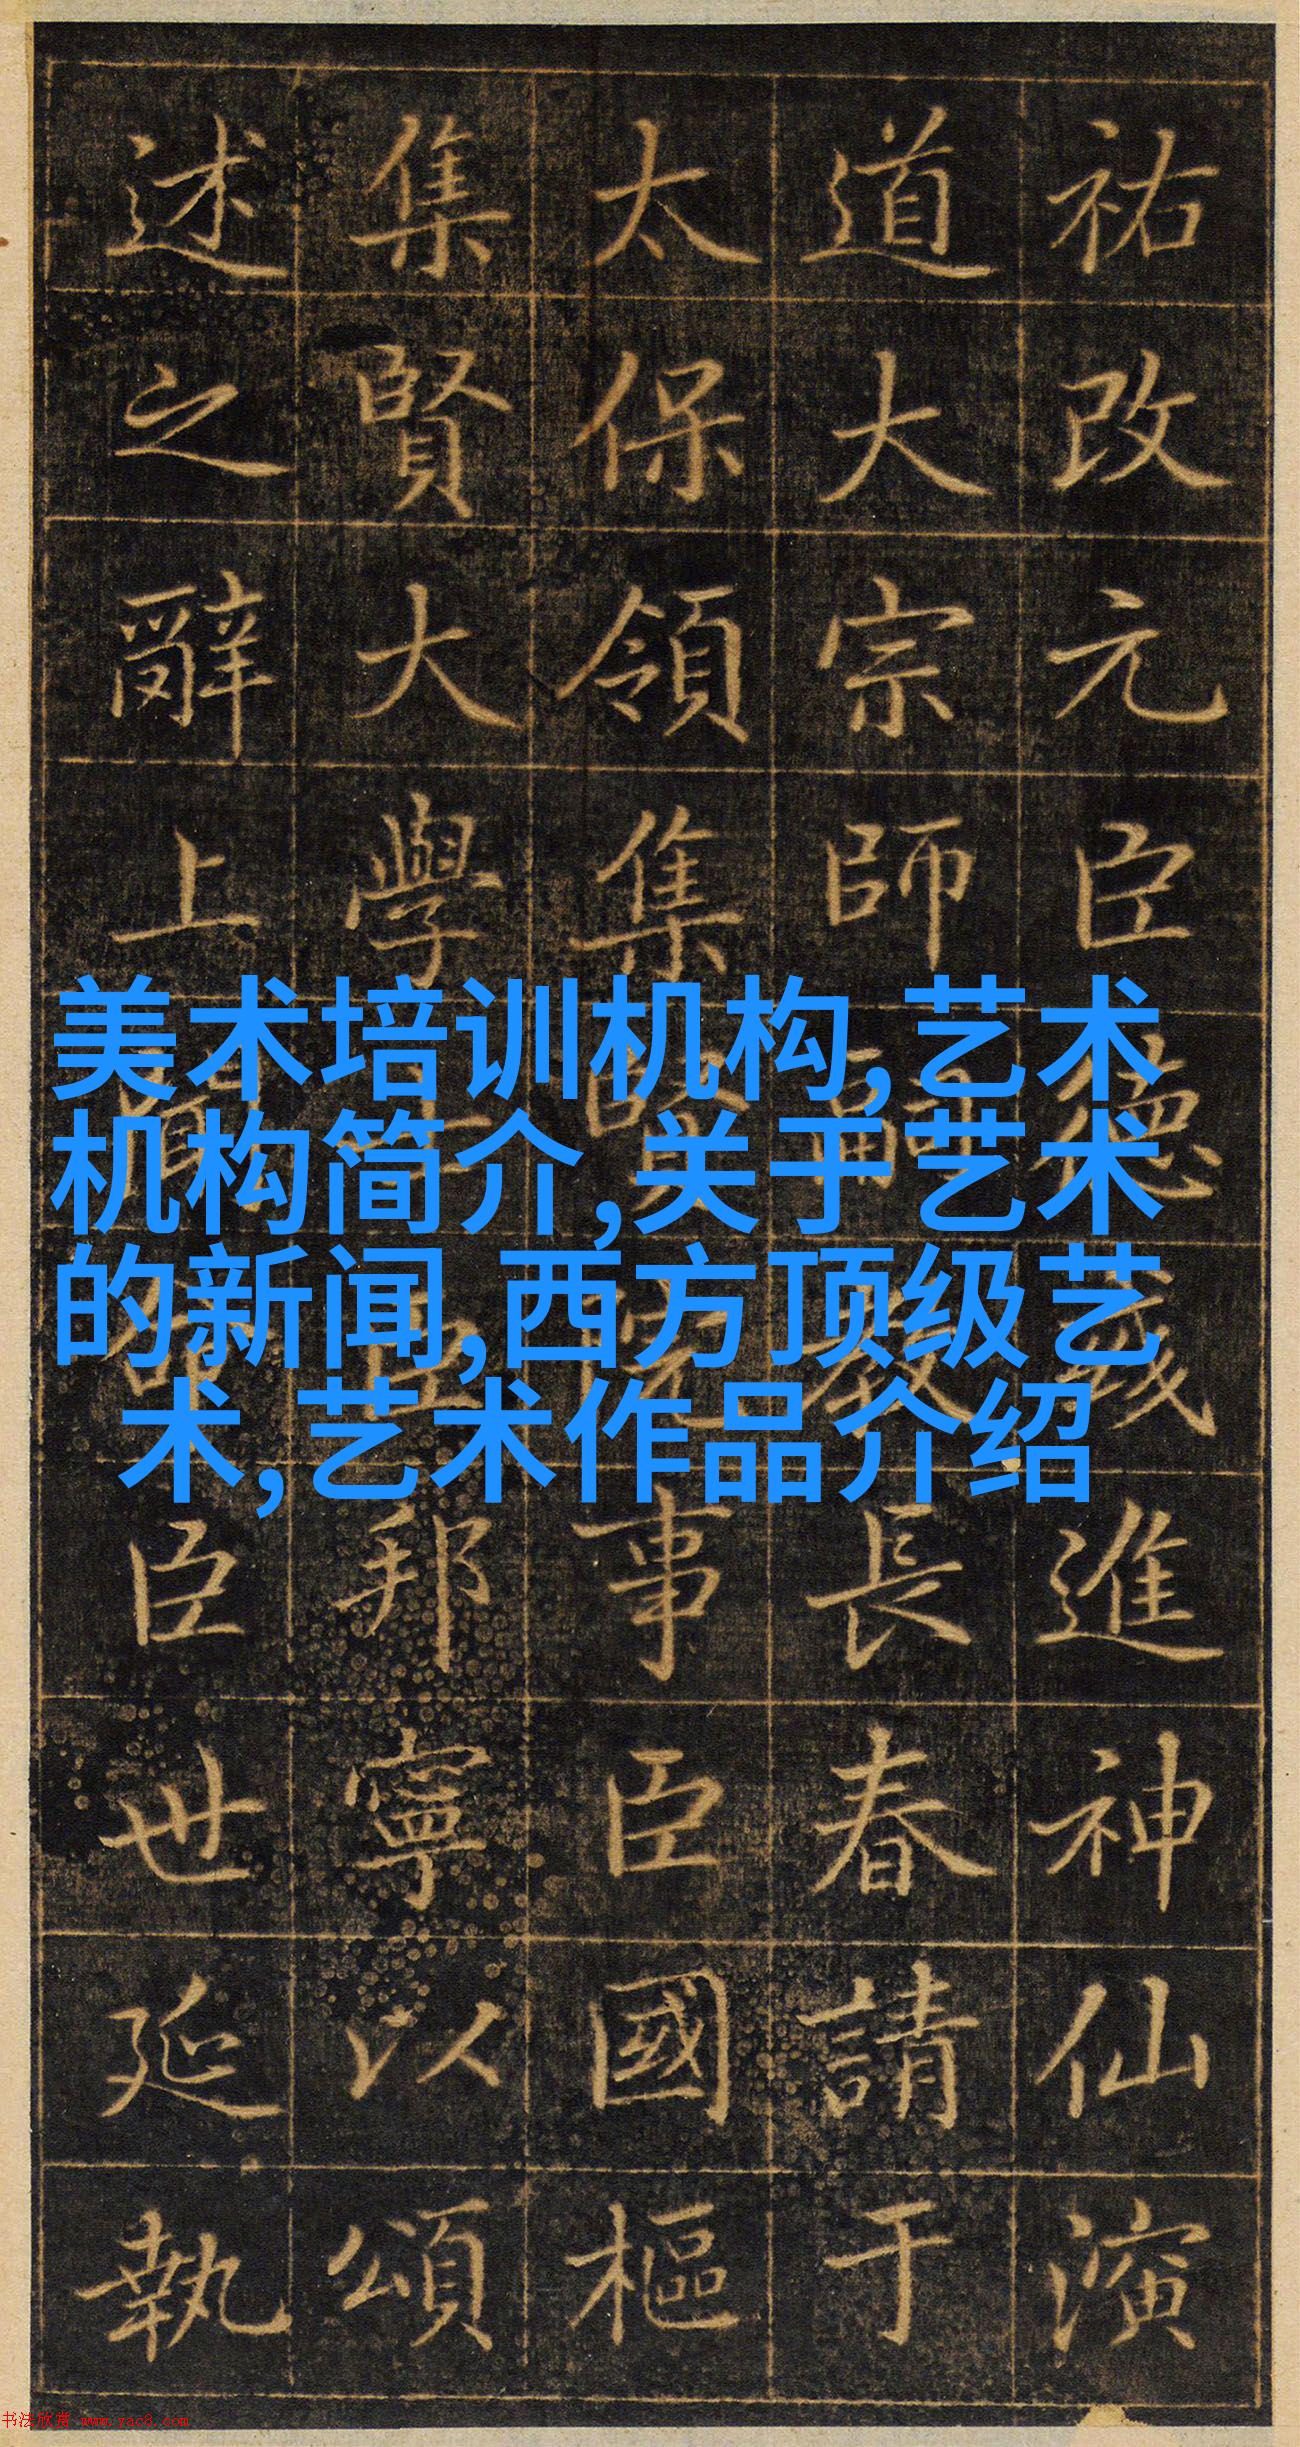 祐改元臣德進神仙演
道大宗師教長春請于
太保領集賢院事臣國樞
集賢大學士臣邦寧以頌
述之辭上聞臣世延執
美术培训机构,艺术
机构简介,关于艺术
的新闻,西方顶级艺
术,艺术作品介绍
书法欣赏 www.yac8.com